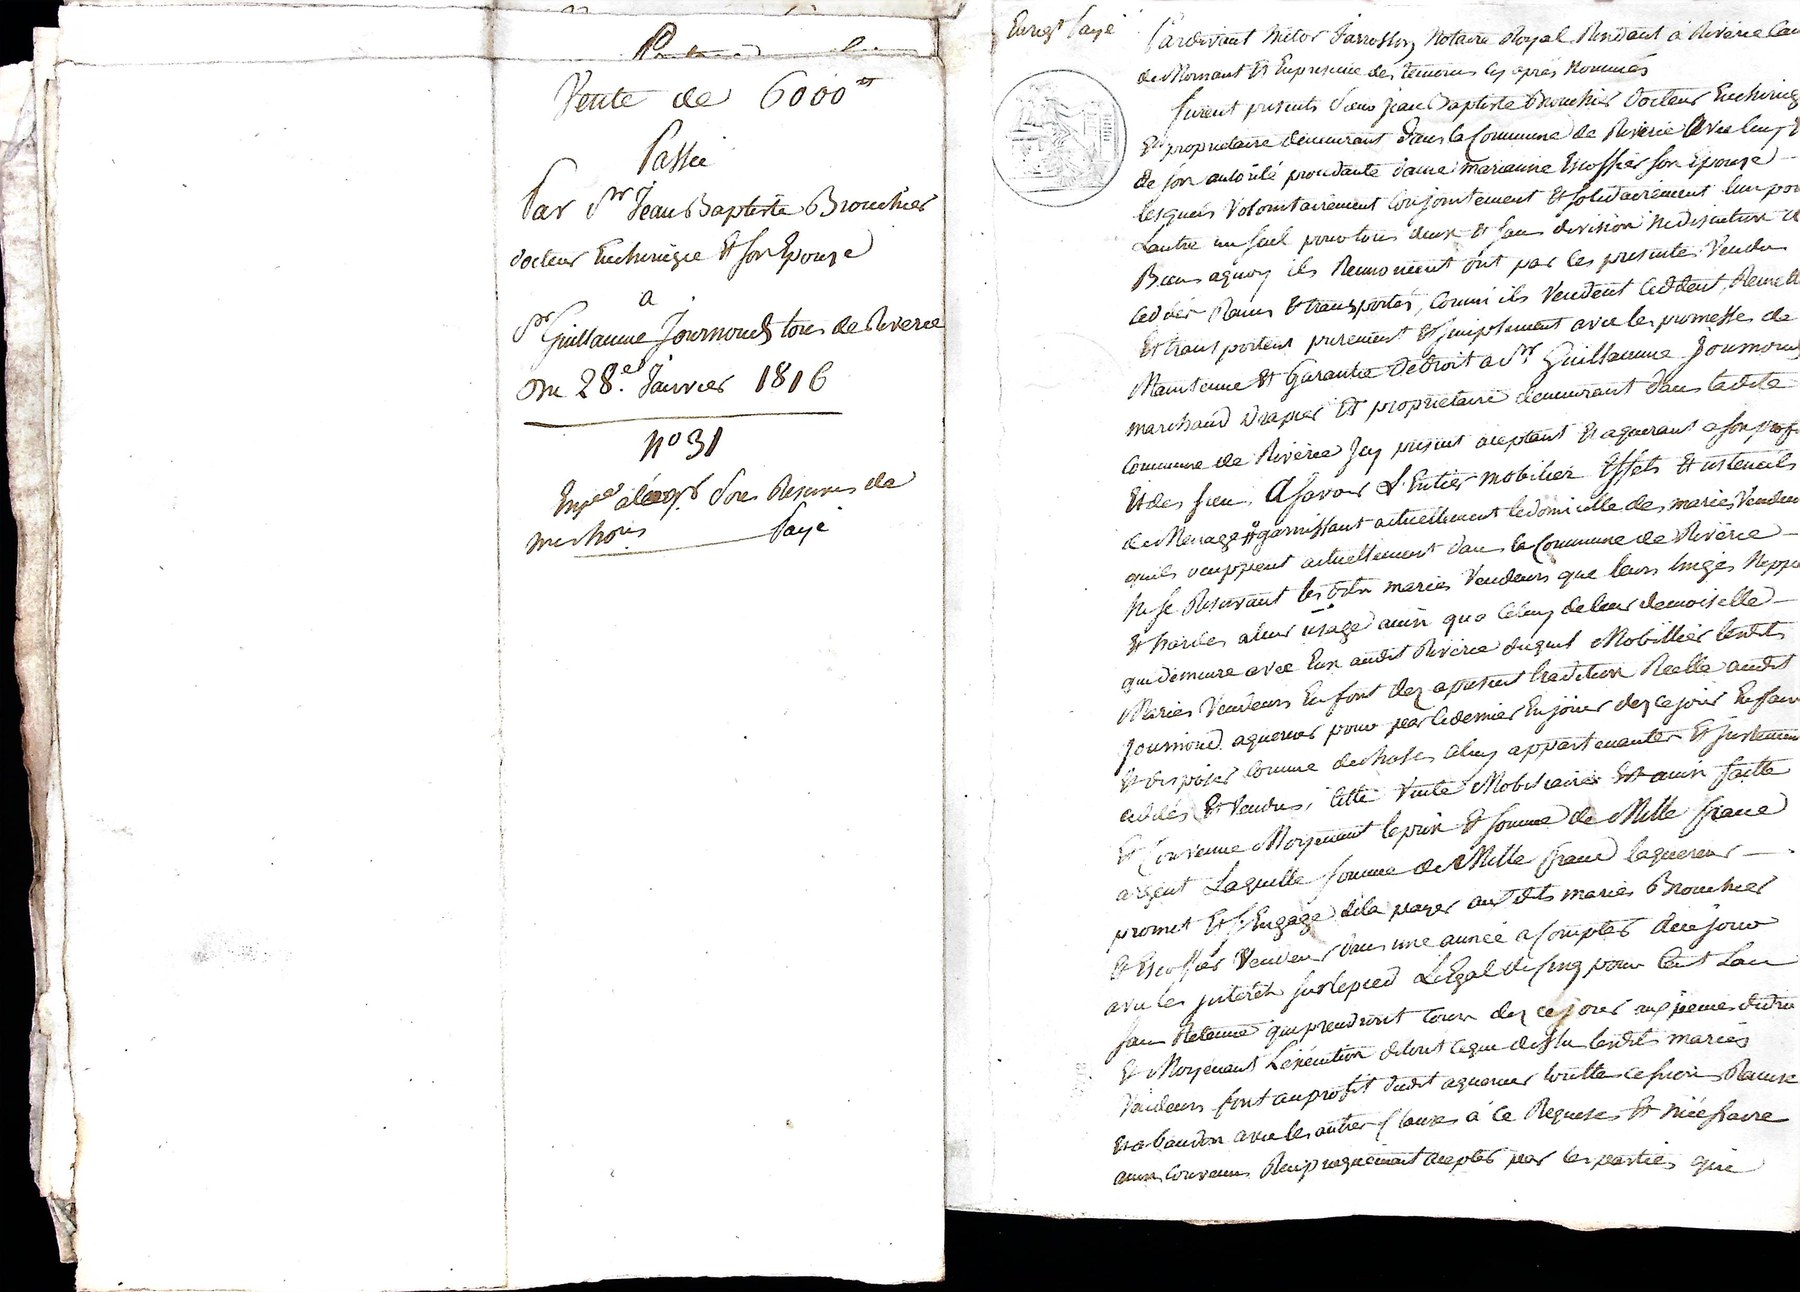 Vente de 6000tt
Passée
Par Sr Jean Baptiste Brouchier
docteur Enchirugie Et son Epouze
a
Sr Guillaume Journoud tous de Riverie
Du 28.e Janvier 1816
No 31
des Reserves de
Payé
Enregt Payé
Pardevant Notaire Royal Residant à Riverie Can
de Mornant Et En presence des temoins cy après Nommés
furent presents Sieur Jean Baptiste Brouchier docteur Enchirugie
Et proprietaire demeurant dans la Commune de Riverie Avec luy Et
de son autorité procedante dame marianne Escoffier son Epouze
lesquels Volontairement Conjointement Et Solidairement l'un pour
Lautre un seul pour tous deux Et sans division Ni discution de
Biens aquoy ils Renoncent ont par les presentes Vendu
Ceddés Remis Et transportés, Comme ils Vendent Ceddent, Remettent
Et transportent purement Et simplement avec les promesses de
Maintenue Et Garantie De droit a Sr Guillaume Journoud
marchand Drapier Et proprietaire demeurant dans ladite
Commune de Riverie Icy present aceptant Et aquerant a son profit
Et des siens, Asavoir L'Entier mobilier Effets Et ustencils
de Menage Et garnissant actuellement le domicille des mariés Vendeurs
quils occuppent actuellement dans la Commune de Riverie
Ne se Reservant lesdits mariés Vendeurs que leurs linges Nippes
Et hardes aleur usage ainsi que celuy de leur demoiselle
qui demeure avec Eux audit Riverie duquel Mobillier lesdits
Mariés Vendeurs En font dez apresent tradition Reelle audit
Journoud aquereur pour par ce dernier En jouir dez ce jour En faire
Et disposer Comme de choses aluy appartenantes Et justement
ceddés Et Vendus, cette Vente Mobiliaire Est ainsi faitte
Et Convenue Moyenant le prix Et somme de Mille francs
argent Laquelle somme de Mille francs laquereur
promet Et s'Engage de la payer auxdits mariés Brouchier
Et Escoffier Vendeurs dans une année a Compter de ce jour
avec les interêts sur le pied Légal de Cinq pour Cent Lan
sans Retenue qui prendront Cours dez ce jour aux peines de droit
Et Moyenant L'execution de tout ce que dessus lesdits mariés
Vendeurs font au profit dudit aquereur toutte cession Remise
Et abandon avec les autres Clauses à ce Requises Et nécéssaire
ainsi Convenu Reciproquement acepté par les parties qui